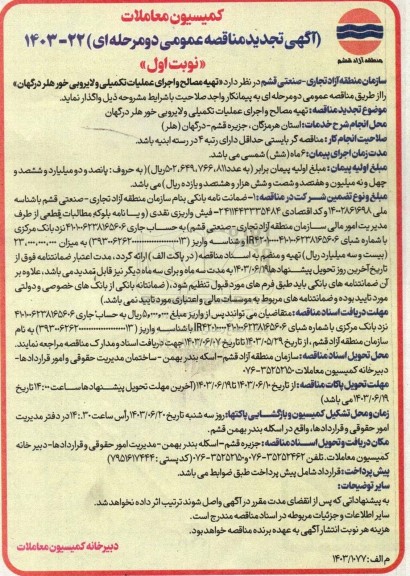 کمیسیون معاملات
(آگهی تجدید مناقصه عمومی دو مرحله ای) ۲۲-۱۴۰۳
«نوبت اول»
منطقه آزاد قشم
سازمان منطقه آزاد تجاری-صنعتی قشم در نظر دارد «تهیه مصالح و اجرای عملیات تکمیلی و لایروبی خور هلر درگهان»
را از طریق مناقصه عمومی دو مرحله ای به پیمانکار واجد صلاحیت با شرایط مشروحه ذیل واگذار نماید.
موضوع تجدید مناقصه: تهیه مصالح و اجرای عملیات تکمیلی و لایروبی خور هلر درگهان
محل انجام شرح خدمات: استان هرمزگان، جزیره قشم-درگهان (هلر)
صلاحیت انجام کار: مناقصه گر بایستی حداقل دارای رتبه ۴ در رسته ابنیه باشد.
مدت زمان اجرای پیمان: ۶ ماه (شش) شمسی می باشد.
مبلغ اولیه پیمان: مبلغ اولیه پیمان برابر (به عدد ۵۰۲،۶۴۹،۷۶۶،۸۱۱ ریال) (به حروف: پانصد و دو میلیارد و ششصد و
چهل و نه میلیون و هفتصد و شصت و شش هزار و هشتصد و یازده ریال) می باشد.
مبلغ و نوع تضمین شرکت در مناقصه: ۱-ضمانت نامه بانکی بنام سازمان منطقه آزاد تجاری-صنعتی قشم با شناسه
ملی ۱۴۰۰۲۸۶۱۶۹۸ و کد اقتصادی ۴۱۱۴۴۳۳۳۵۴۸۴ ۲-فیش واریزی نقدی (و یا نامه بلوکه مطالبات قطعی از طرف
مدیریت امور مالی سازمان منطقه آزاد تجاری-صنعتی قشم) به حساب جاری ۴۰۰۱۰۱۰۶۲۳۸۱۶۵۶۰۶ نزد بانک مرکزی
به میزان ۲۳،۰۰۰،۰۰۰،۰۰۰
(بیست و سه میلیارد ریال) تهیه و منضم به اسناد مناقصه (در پاکت الف) ارائه گردد، مدت اعتبار ضمانتنامه فوق از
تاریخ آخرین روز تحویل پیشنهادها ۱۴۰۳/۰۶/۱۹ به مدت سه ماه و برای سه ماه دیگر نیز قابل تمدید می باشد، علاوه بر
آن ضمانتنامه های بانکی باید طبق فرم های مورد قبول تنظیم شود، (ضمانتنامه بانکی از بانک های خصوصی و دولتی
مورد تایید بوده و ضمانتنامه های مربوط به موسسات مالی و اعتباری مورد تایید نمی باشد).
مهلت دریافت اسناد مناقصه: متقاضیان می توانند پس از واریز مبلغ ریال به حساب جاری ۴۰۰۱۰۱۰۶۲۳۸۱۶۵۶۰۶
نزد بانک مرکزی با شماره شبای به نام
سازمان منطقه آزاد قشم، از تاریخ ۱۴۰۳/۰۵/۲۹ تا تاریخ ۱۴۰۳/۰۶/۰۷ جهت دریافت اسناد و مدارک مناقصه مراجعه نمایند.
محل تحویل اسناد مناقصه: سازمان منطقه آزاد قشم-اسکله بندر بهمن-ساختمان مدیریت حقوقی و امور قراردادها-
دبیرخانه کمیسیون معاملات ۳۵۲۵۲۱۵۰-۰۷۶
مهلت تحویل پاکات مناقصه: از تاریخ ۱۴۰۳/۰۶/۱۰ تا ۱۴۰۳/۰۶/۱۹ (آخرین مهلت تحویل پیشنهادها ساعت ۱۴:۰۰ تاریخ
۱۴۰۳/۰۶/۱۹ می باشد)
زمان و محل تشکیل کمیسیون و بازگشایی پاکتها: روز سه شنبه تاریخ ۱۴۰۳/۰۶/۲۰ راس ساعت ۱۴:۳۰ در دفتر مدیریت
امور حقوقی و قراردادها، واقع در اسکله بندر بهمن قشم.
مکان دریافت و تحویل اسناد مناقصه: جزیره قشم-اسکله بندر بهمن-مدیریت امور حقوقی و قراردادها-دبیرخانه
کمیسیون معاملات. تلفن ۳۵۲۵۲۴۶۲-۰۷۶ و ۳۵۲۵۲۱۵۰-۰۷۶ (کد پستی: ۷۹۵۱۶۱۷۴۴۴)
پیش پرداخت: قرارداد شامل پیش پرداخت طبق ضوابط می باشد.
سایر توضیحات:
به پیشنهاداتی که پس از انقضای مدت مقرر در آگهی واصل شوند ترتیب اثر داده نخواهد شد.
سایر اطلاعات و جزئیات مربوطه در اسناد مناقصه مندرج است.
هزینه هر نوبت انتشار آگهی به عهده برنده مناقصه خواهد بود.
دبیرخانه کمیسیون معاملات
م الف: ۱۴۰۳/۱۰۷۷